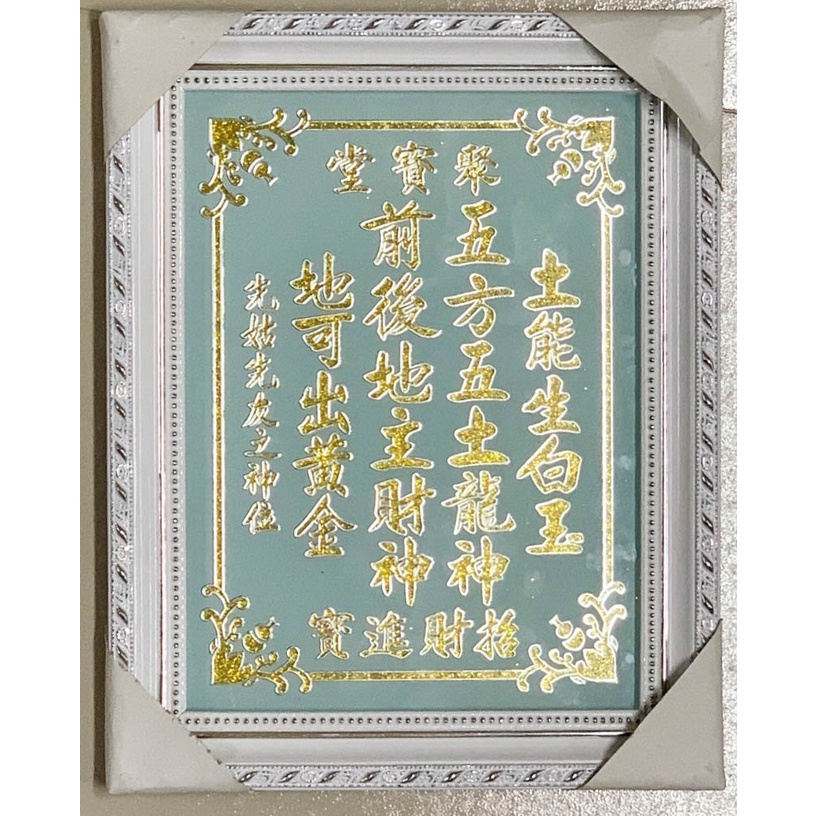 聚寳堂
土能生白玉
五方五土龍神
前後地主財神
地可出黃金
先姑先友之神位
招財進寳